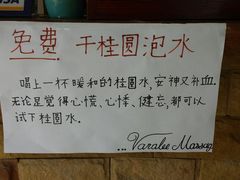 免费 干桂圆泡水
喝上一杯暖和的桂圆水,安神又补血.
无论是觉得心慌、心悸、健忘,都可以
试下桂圆水.
...Varalee Massag